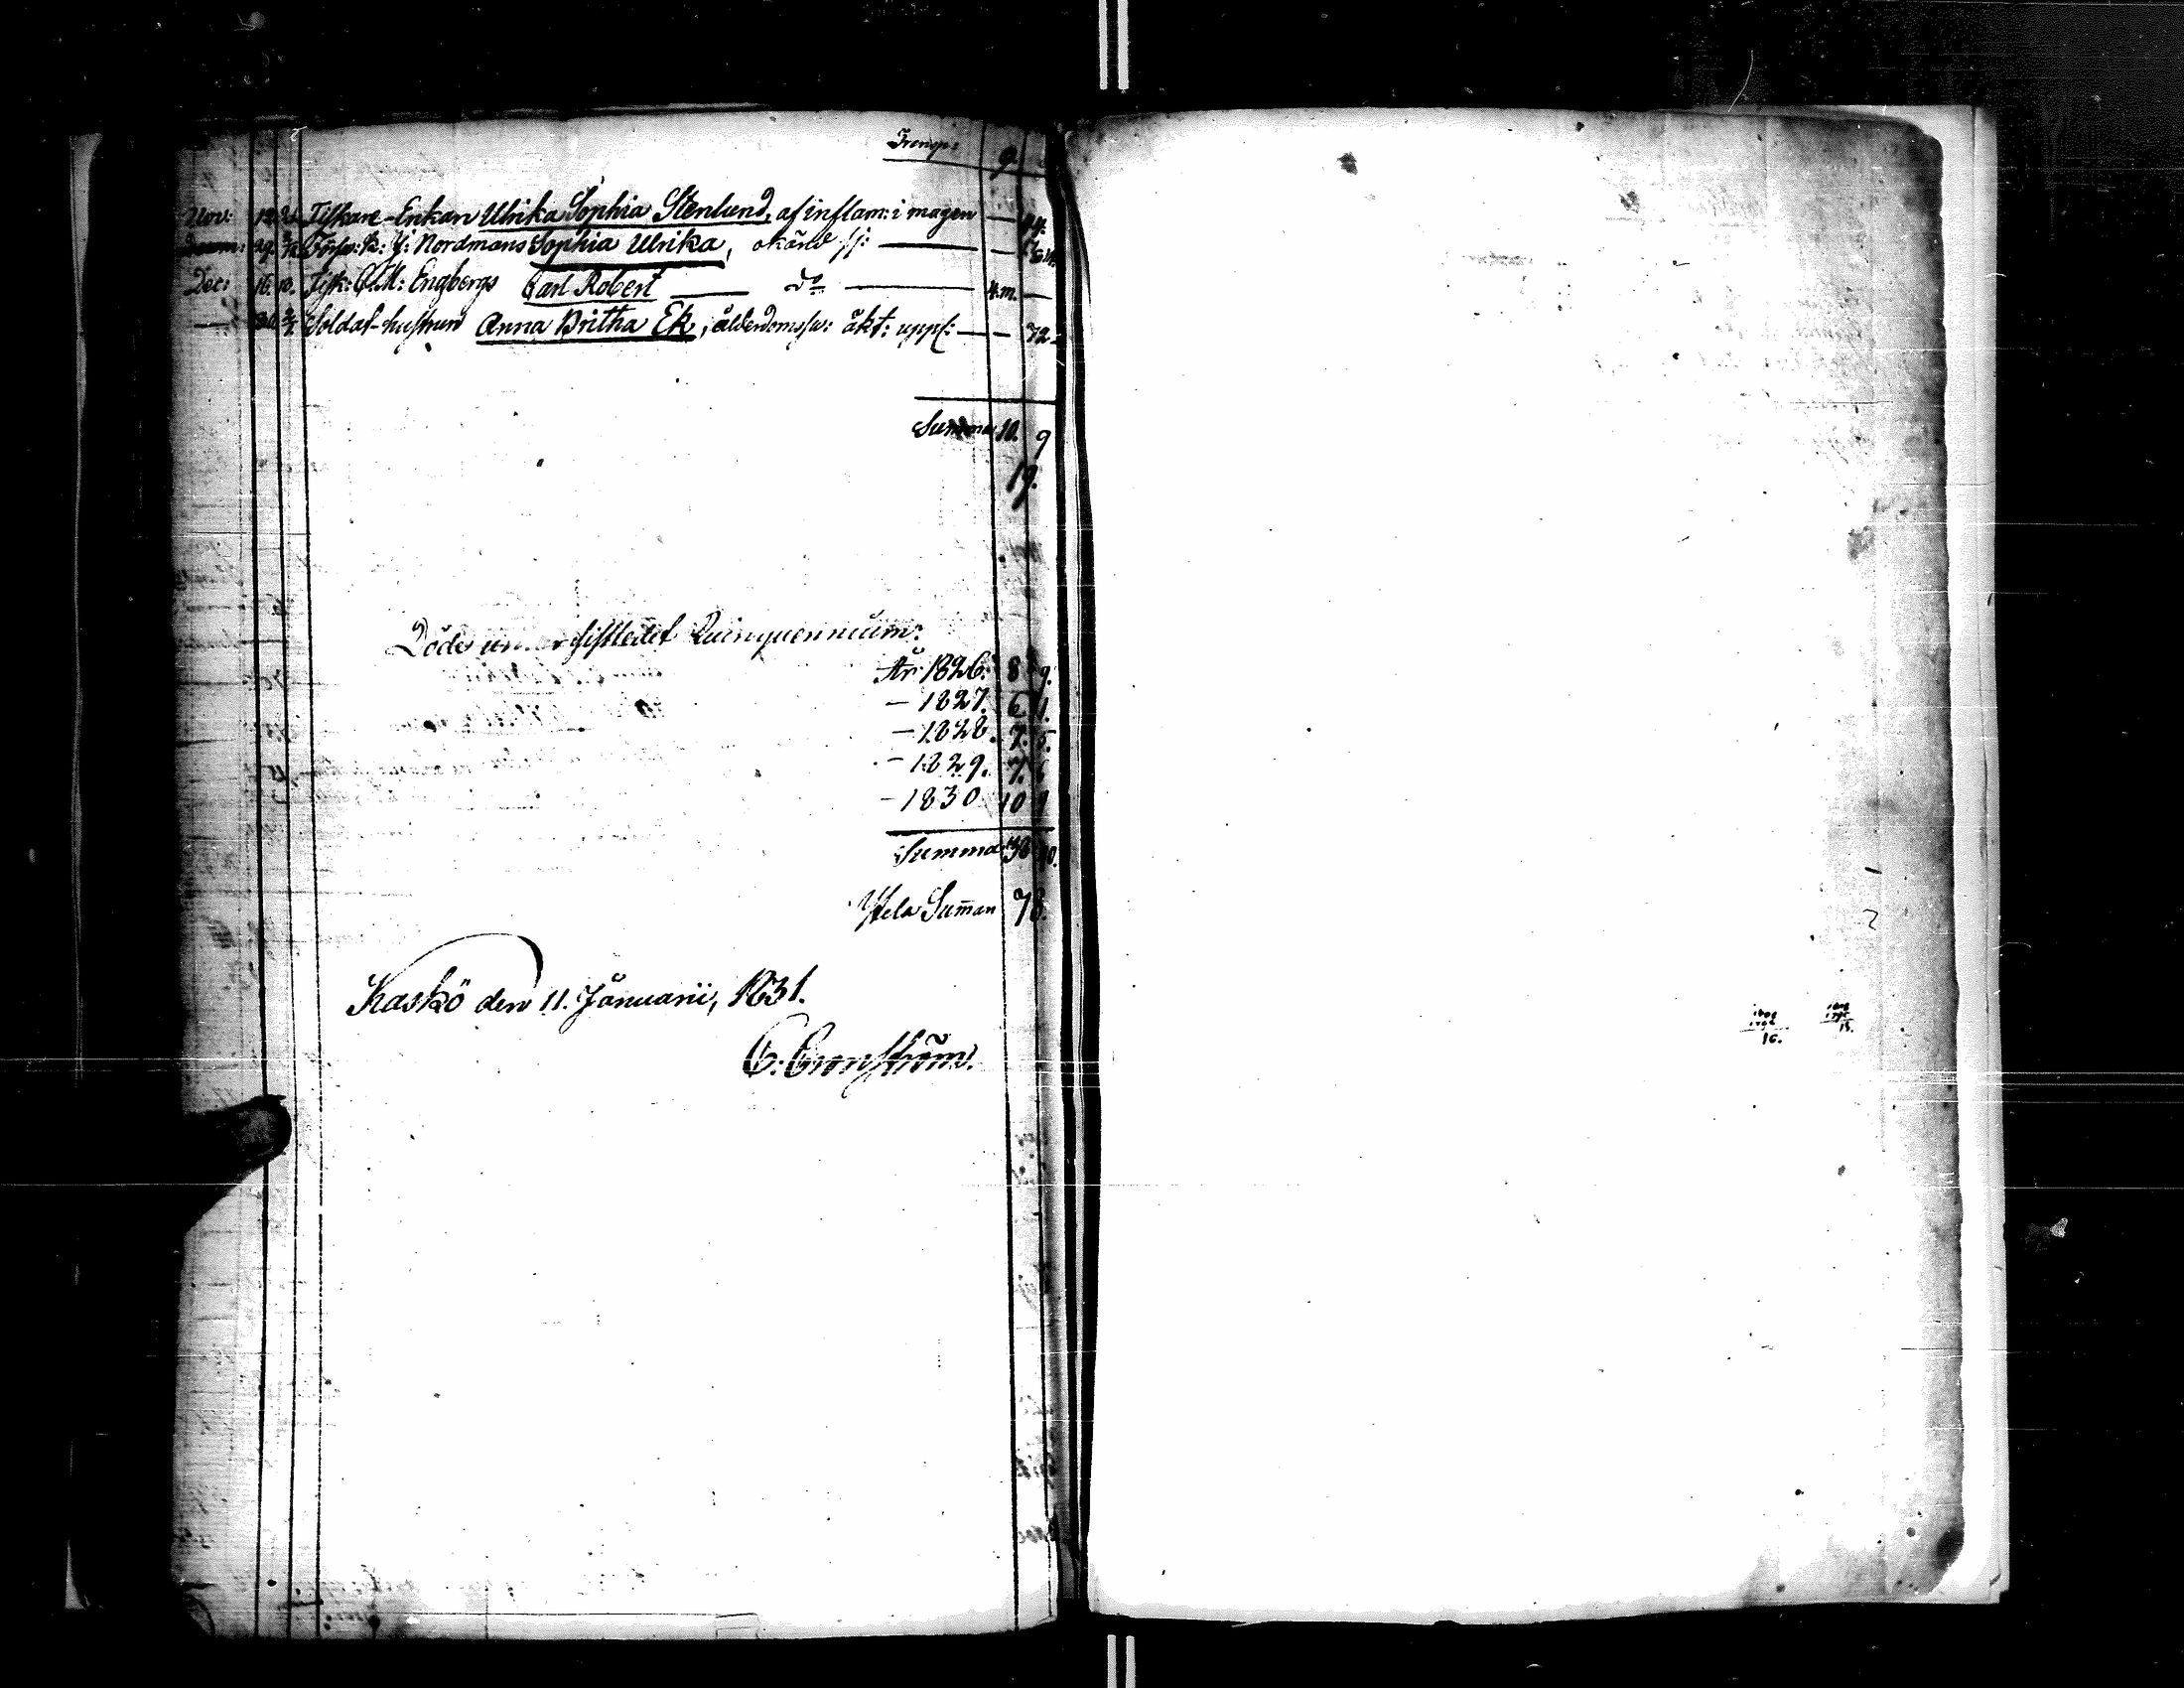 Transp: 9.
Nov: 12. 21. Fiskare-Enkan Ulrika Sophia Stenlund, af inflam: i magen — 44.
29. Nordmans Sophia Ulrika, okänd sj: — —
Dec: 16. 18. Fisk: C. M: Engbergs Carl Robert — do — 4.m. —
— Soldat-hustrun Anna Britha Ek, ålderdomssv: åkt: uppl: — — 72.
Summa 10. 9
19.
Döde under sistledet Quinquennium:
År 1826: 8 9.
— 1827. 6 1.
— 1828. 7. 5.
— 1829. 7. 6
— 1830 10 9
Summa 38 40.
Hela Sum̄an 78.
Kaskö den 11. Januarii, 1831.
C: Cronström.
16.
15.